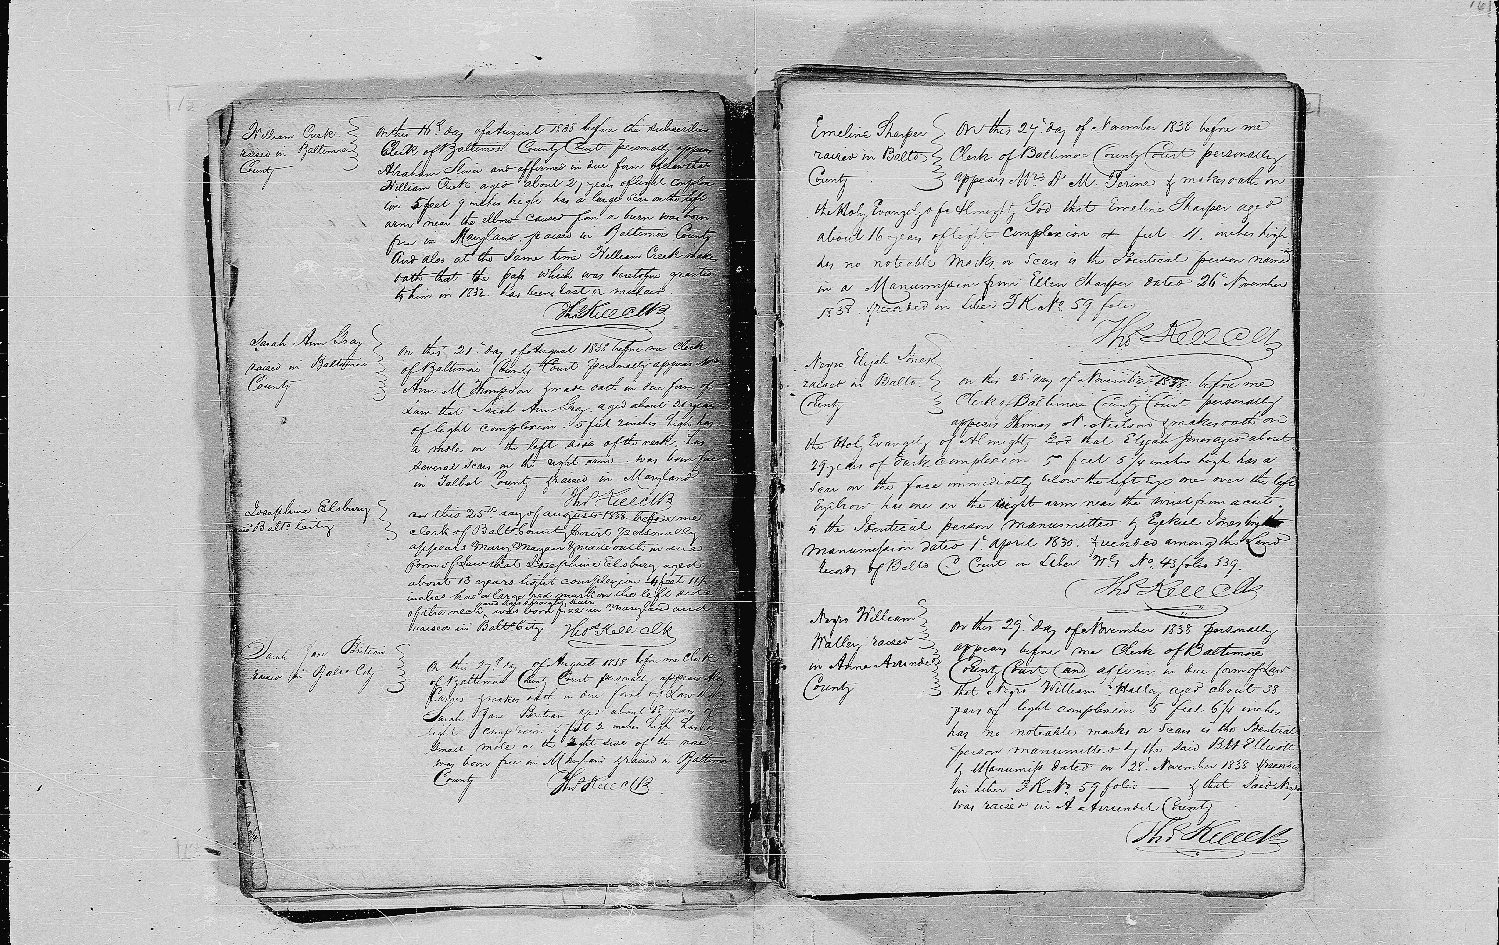 William Creek
raised in Baltimore
County
On this 16th day of August 1838 before the subscriber
Clerk of Baltimore County Court personally appears
Abraham Stover and affirmed in due form of law that
William Creek aged about 21 years of light complex
ion 5 feet 9 inches high has a large scar on the left
arm near the elbow caused from a burn was born
free in Maryland & raised in Baltimore County
And also at the same time William Creek make
oath that the pass which was heretofore granted
to him in 1832 has been lost or mislaid
Thos Kell Clk
Sarah Ann Gray
raised in Baltimore
County
On this 21st day of August 1838 before me Clerk
of Baltimore County Court personally appears
Ann M Thompson & made oath in due form of
Law that Sarah Ann Gray aged about 20 years
of light complexion 5 feet 2 inches high has
a mole on the left side of the neck, has
several scars on the right arm was born free
in Talbot County & raised in Maryland
Thos Kell Clk
Josephine Elsbury
Balto City
on this 25th day of august 1838 before me
clerk of Balt County Court personally
appears Mary & made oath in due
form of Law that Josephine Elsbury aged
about 13 years light complexion 4 feet 11
inches has a large red mark on the left side
of the neck, was born free in Maryland and
raised in Balto City Thos Kell Clk
Sarah Jane Britian
raised in Balto City
On this 27th day of August 1838 before me Clerk
of Baltimore County Court personally appears
& makes oath in due form of Law that
Sarah Jane Britian aged about 13 years of
light complexion 5 feet 2 inches high has a
small mole on the right side of the nose
was born free in Maryland & raised in Baltimore
County Thos Kell Clk
Emeline Sharper
raised in Balto
County
On this 27th day of November 1838 before me
Clerk of Baltimore County Court personally
appears Mrs D M Perine & makes oath on
the Holy Evangely of Almighty God that Emeline Sharper aged
about 16 years of light complexion 4 feet 11 inches high
has no noteable marks or scars is the Identical person named
in a Manumission from Ellen Sharper dated 26th November
1838 & recorded in Liber T K No 59 folio
Thos Kell Clk
Negro Elijah Jones
raised in Balto
County
On this 28th day of November 1838 before me
Clerk of Baltimore County Court personally
appears Thomas N. Nelson & makes oath on
the Holy Evangely of Almighty God that Elijah Jones aged about
29 years of dark complexion 5 feet 5 1/4 inches high has a
scar on the face immediately below the left Eye one over the left
Eyebrow has one on the right arm near the wrist from a cut
is the Identical person manumitted by Ezekiel Jones by
Manumission dated 1st April 1830. & recorded among the Land
records of Balto C Court in Liber W G No 43 folio 539.
Thos Kell Clk
Negro William
Walley raised
in Anne Arundel
County
On this 29th day of November 1838 personally
appears before me Clerk of Baltimore
County Court and affirms in due form of Law
that Negro William Walley aged about 38
years of light complexion 5 feet 6 1/4 inches
has no noteable marks or scars is the Identical
person manumitted by the said
by Manumiss dated on 28th November 1838 & recorded
in Liber T K No 59 folio — & that said Negro
was raised in A Arrundel County
Thos Kell Clk